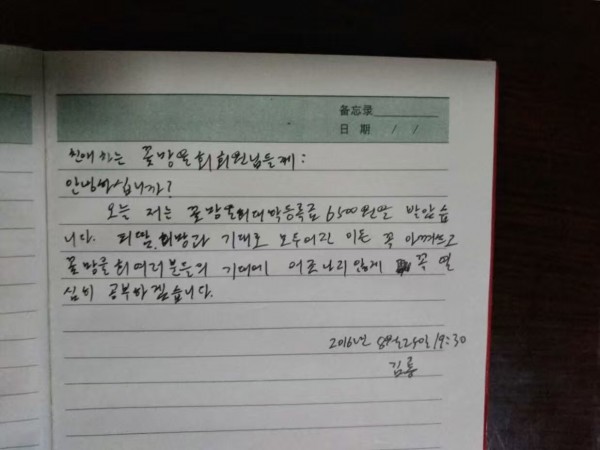 备忘录
日 期 / /
친애하는 꽃망울회 회원님들께:
안녕하십니까?
오늘 저는 꽃망울회 대학등록금 6500원을 받았습
니다. 피땀, 희망과 기대로 모두어진 이돈 꼭 아껴쓰고
꽃망울회 여러분들의 기대에 어긋나지 않게 꼭 열
심히 공부하겠습니다.
2016년 8월 24일 19:30
김룡